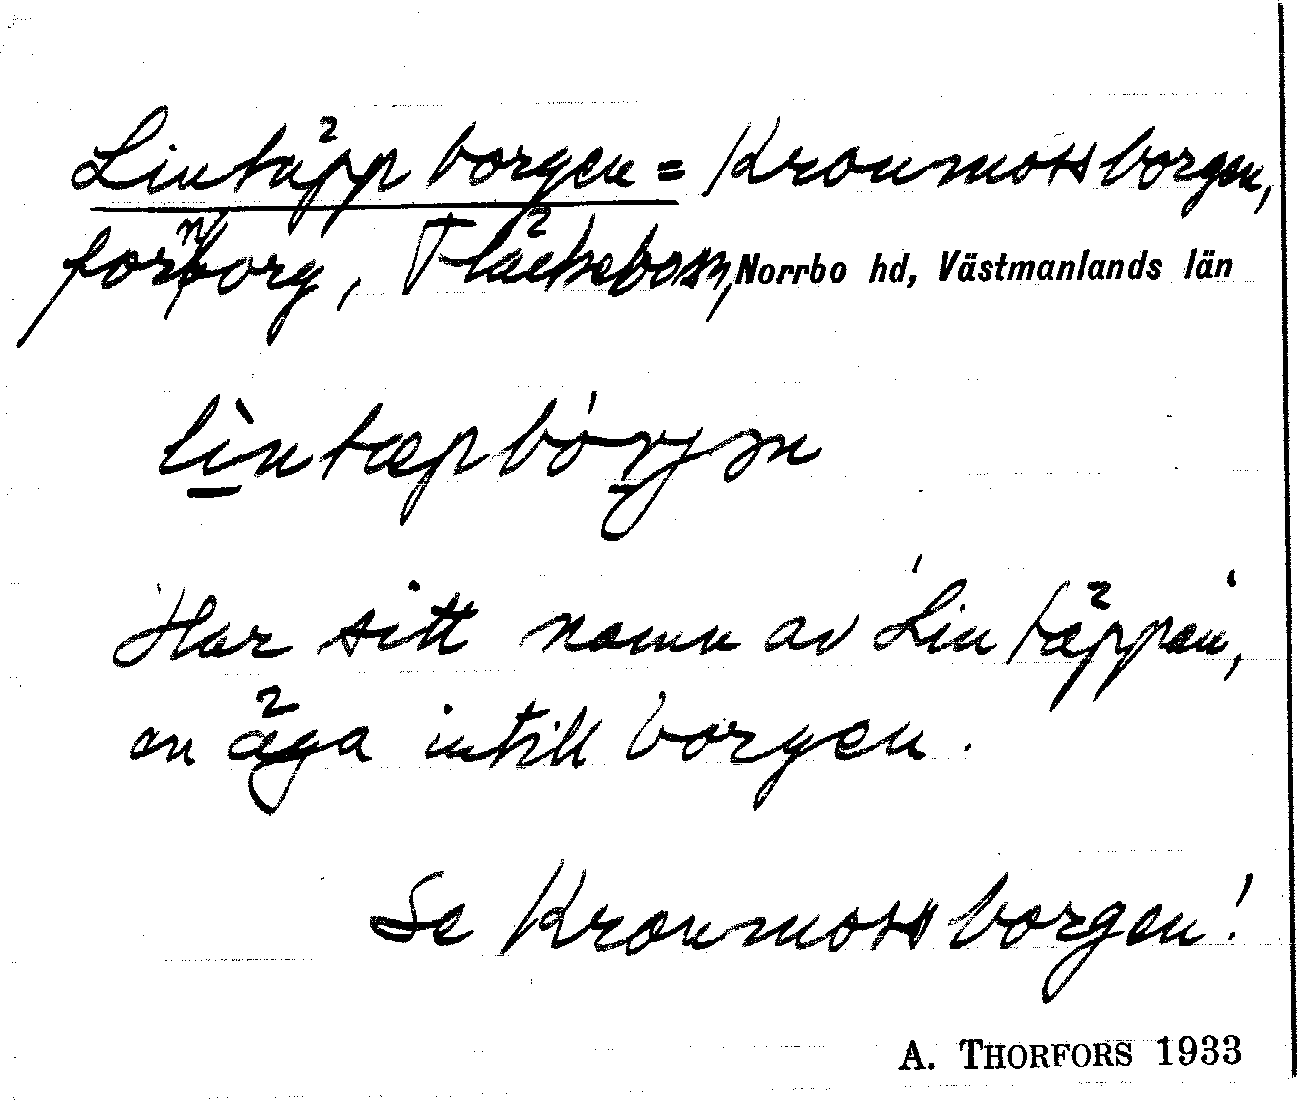 Lintäppborgen = Kronmossborgen,
fornborg, Fläckebosn, Norrbo hd, Västmanlands län
lìntæpbórjən
Har sitt namn av Lintäppen,
en äga intill borgen.
Se Kronmossborgen!
A. THORFORS 1933